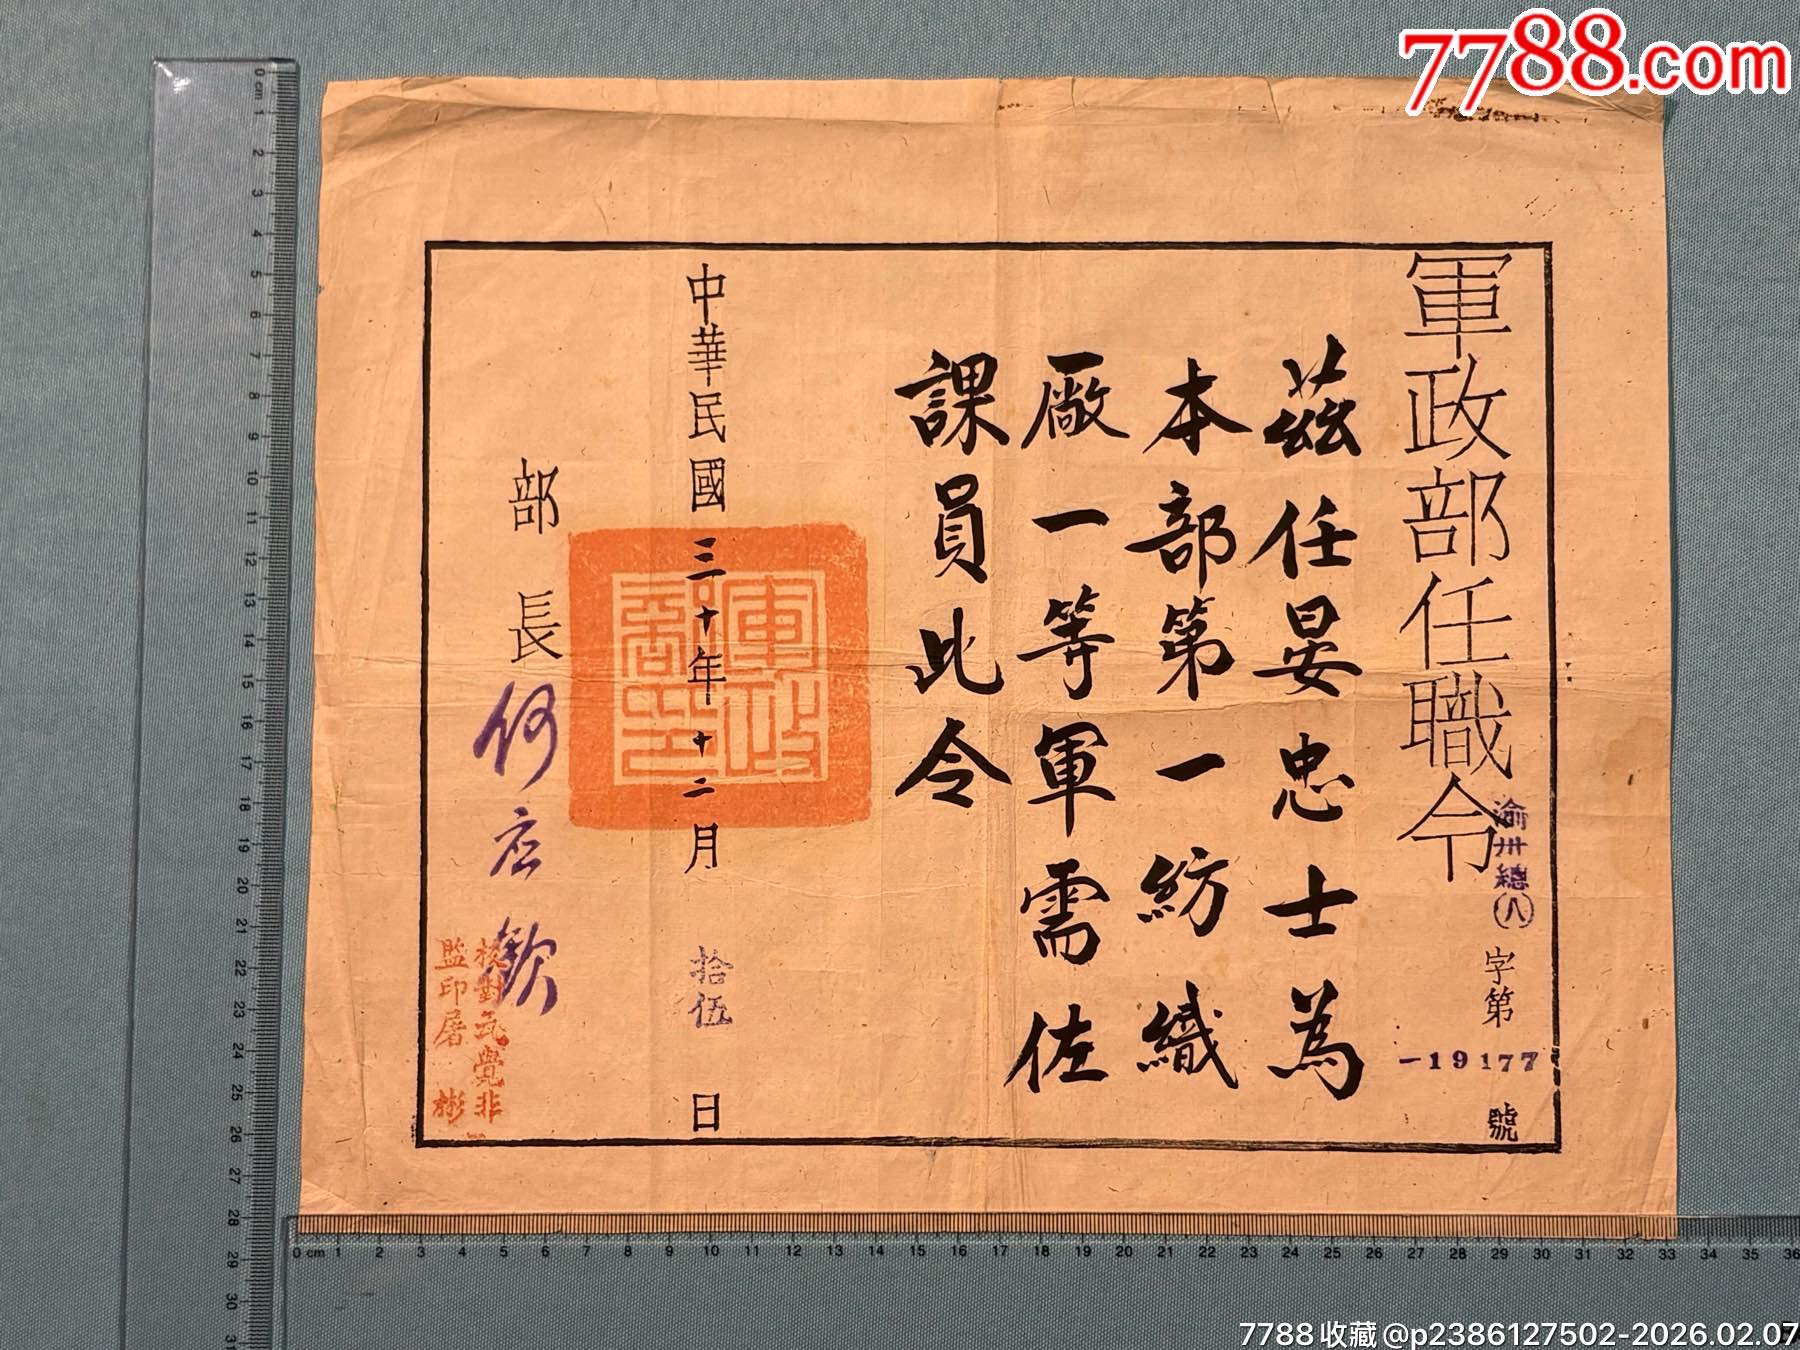 7788.com
軍政部任職令
渝卅總(八)字第-19177號
茲任晏忠士為
本部第一紡織
廠一等軍需佐
課員此令
中華民國三十年十二月拾伍日
部長何应欽
監印屠彬
7788收藏@p2386127502-2026.02.07